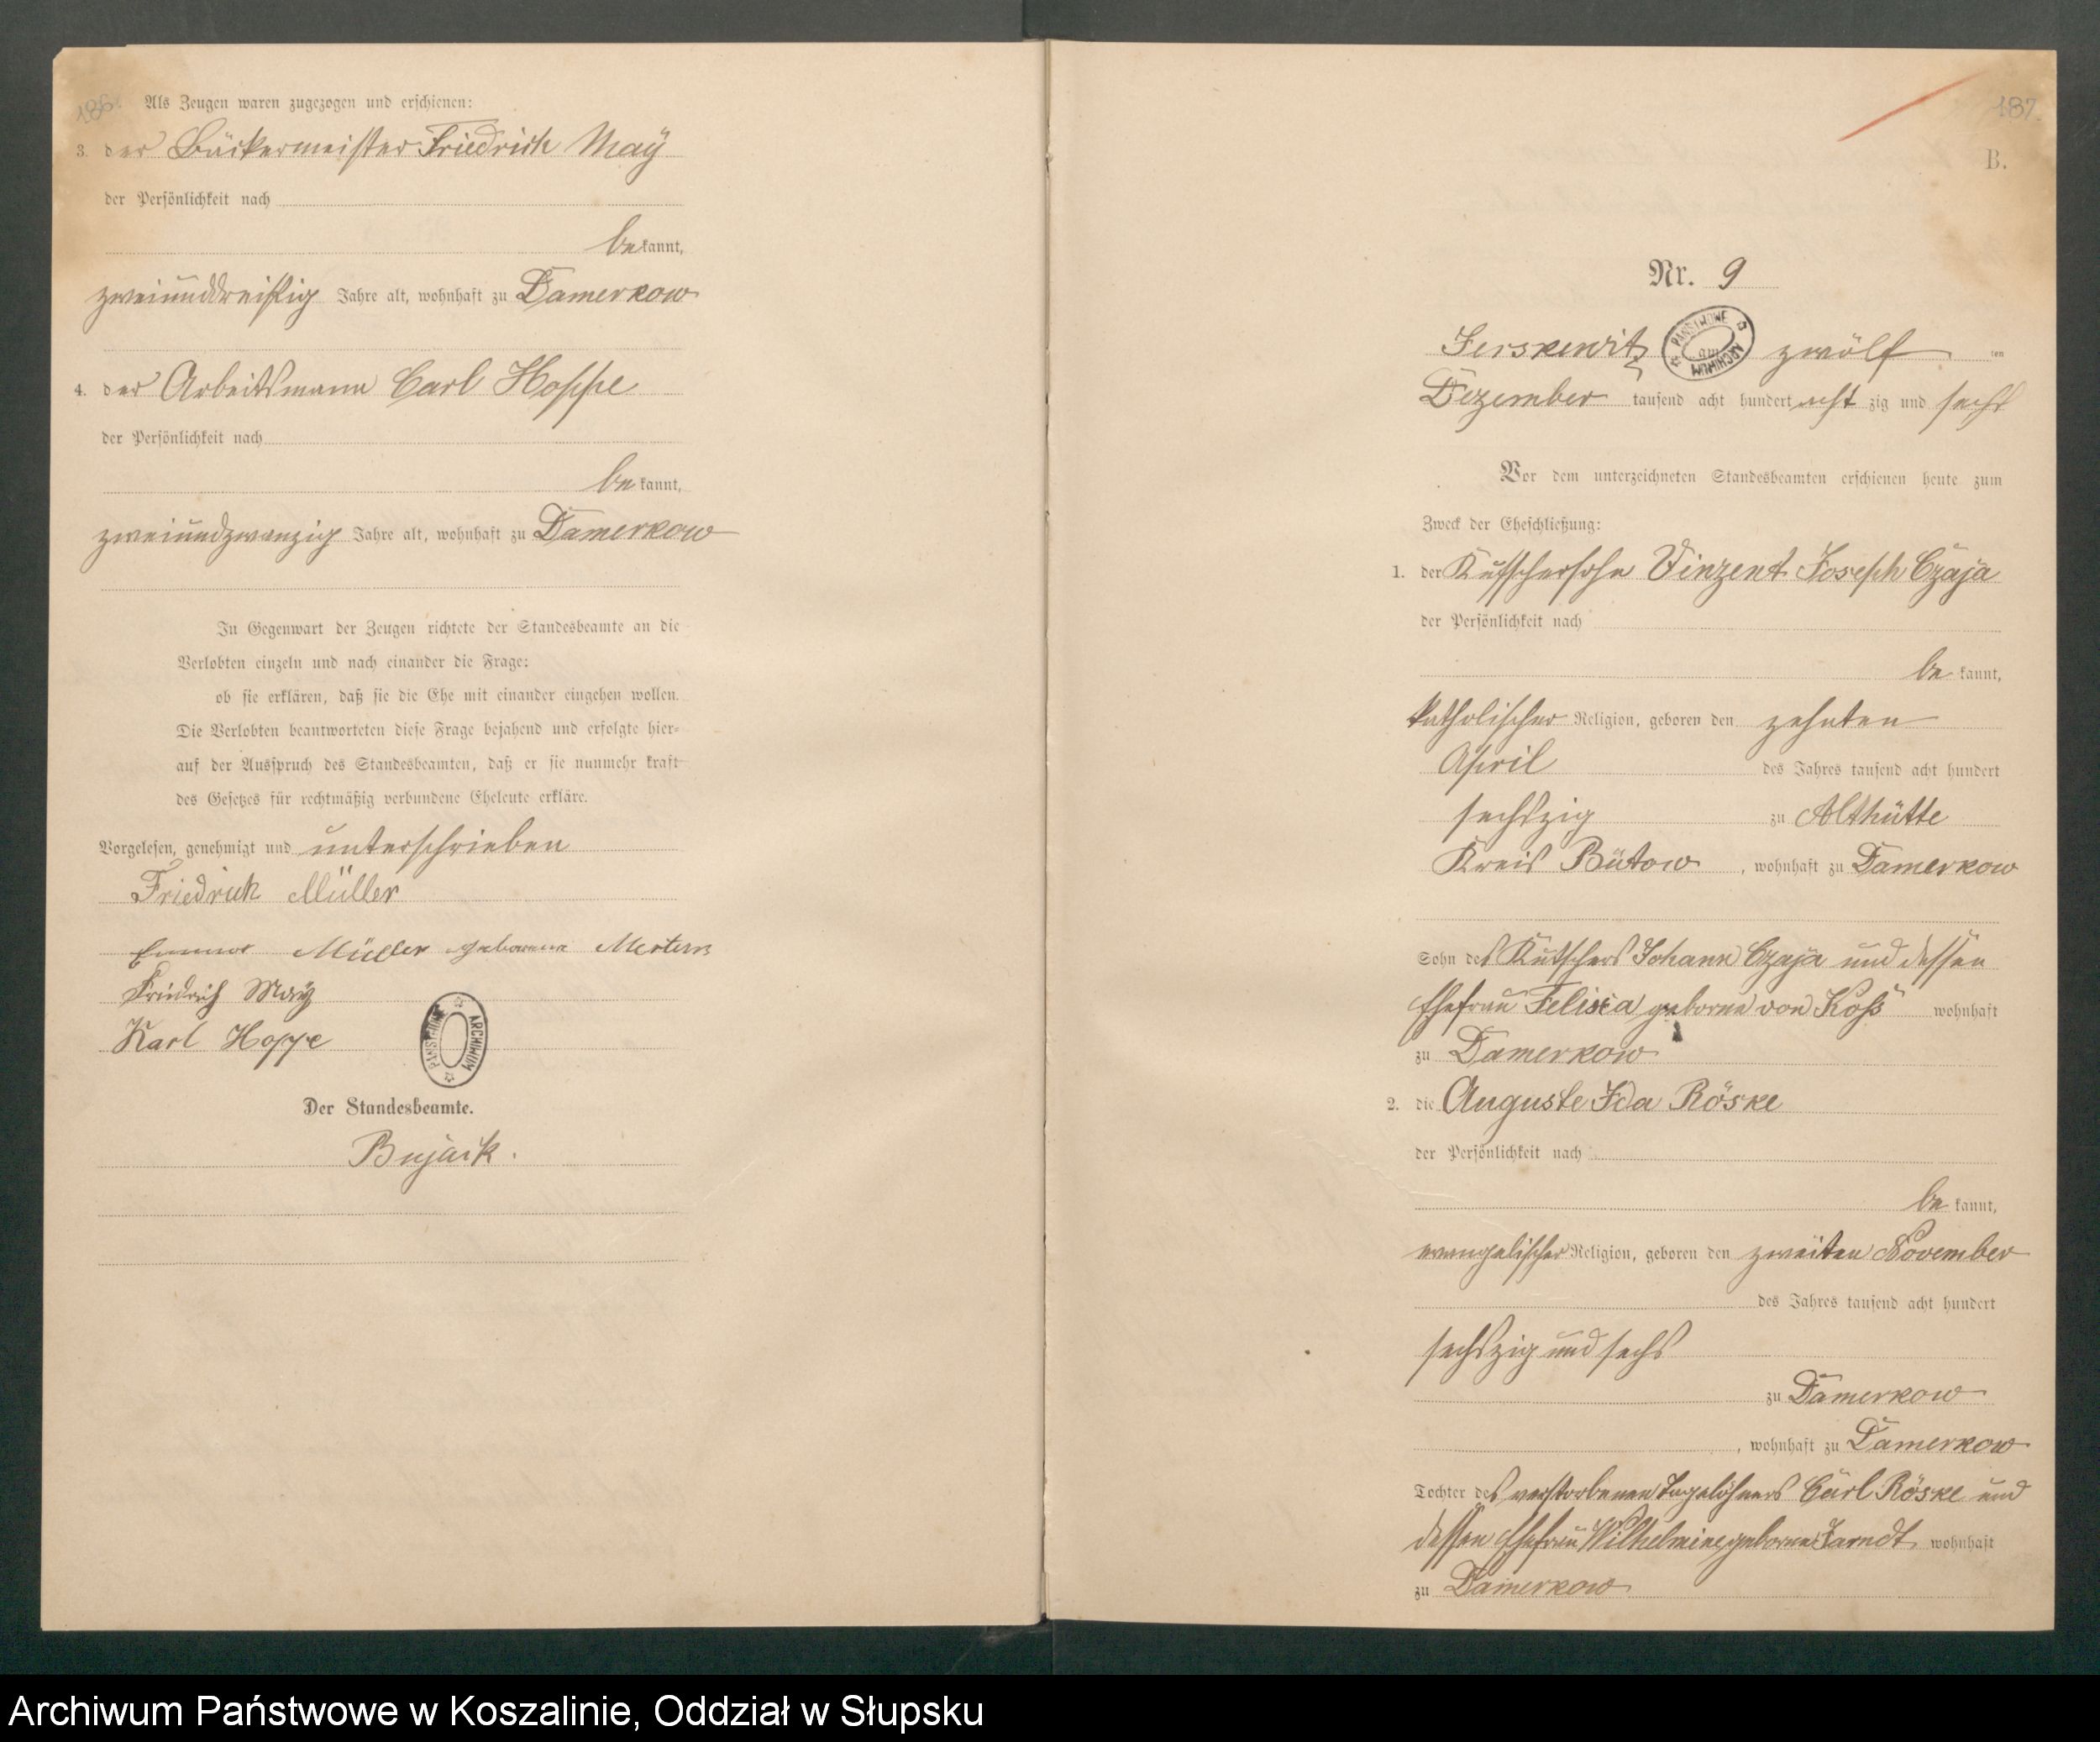 186.
Als Zeugen waren zugezogen und erschienen:
3. der Bäckermeister Friedrich Maÿ
der Persönlichkeit nach
bekannt,
zweiunddreißig Jahre alt, wohnhaft zu Damerkow
4. der Arbeitsmann Carl Hoppe
der Persönlichkeit nach
bekannt,
zweiundzwanzig Jahre alt, wohnhaft zu Damerkow
In Gegenwart der Zeugen richtete der Standesbeamte an die
Verlobten einzeln und nach einander die Frage:
ob sie erklären, daß sie die Ehe mit einander eingehen wollen.
Die Verlobten beantworteten diese Frage bejahend und erfolgte hier-
auf der Ausspruch des Standesbeamten, daß er sie nunmehr kraft
des Gesetzes für rechtmäßig verbundene Eheleute erkläre.
Vorgelesen, genehmigt und unterschrieben
Friedrich Müller
Müller geborene
Friedrich Maÿ
Karl Hoppe
PAŃSTWOWE ARCHIWUM
Der Standesbeamte.
187.
B.
Nr. 9
Jerskewitz am zwölf ten
PAŃSTWOWE ARCHIWUM
Dezember tausend acht hundert acht zig und sechs
Vor dem unterzeichneten Standesbeamten erschienen heute zum
Zweck der Eheschließung:
1. der Kutschersohn Vinzent Joseph Czaja
der Persönlichkeit nach
be kannt,
katholischer Religion, geboren den zehnten
April des Jahres tausend acht hundert
sechszig zu Althütte
Kreis Bütow, wohnhaft zu Damerkow
Sohn des Kutschers Johann Czaja und dessen
Ehefrau Felisia geborne von Koß wohnhaft
zu Damerkow
2. die Auguste Ida Röske
der Persönlichkeit nach
be kannt,
evangelischer Religion, geboren den zweiten November
des Jahres tausend acht hundert
sechszig und sechs
zu Damerkow
, wohnhaft zu Damerkow
Tochter des verstorbenen Tagelöhners Carl Röske und
dessen Ehefrau Wilhelmine geborne wohnhaft
zu Damerkow
Archiwum Państwowe w Koszalinie, Oddział w Słupsku